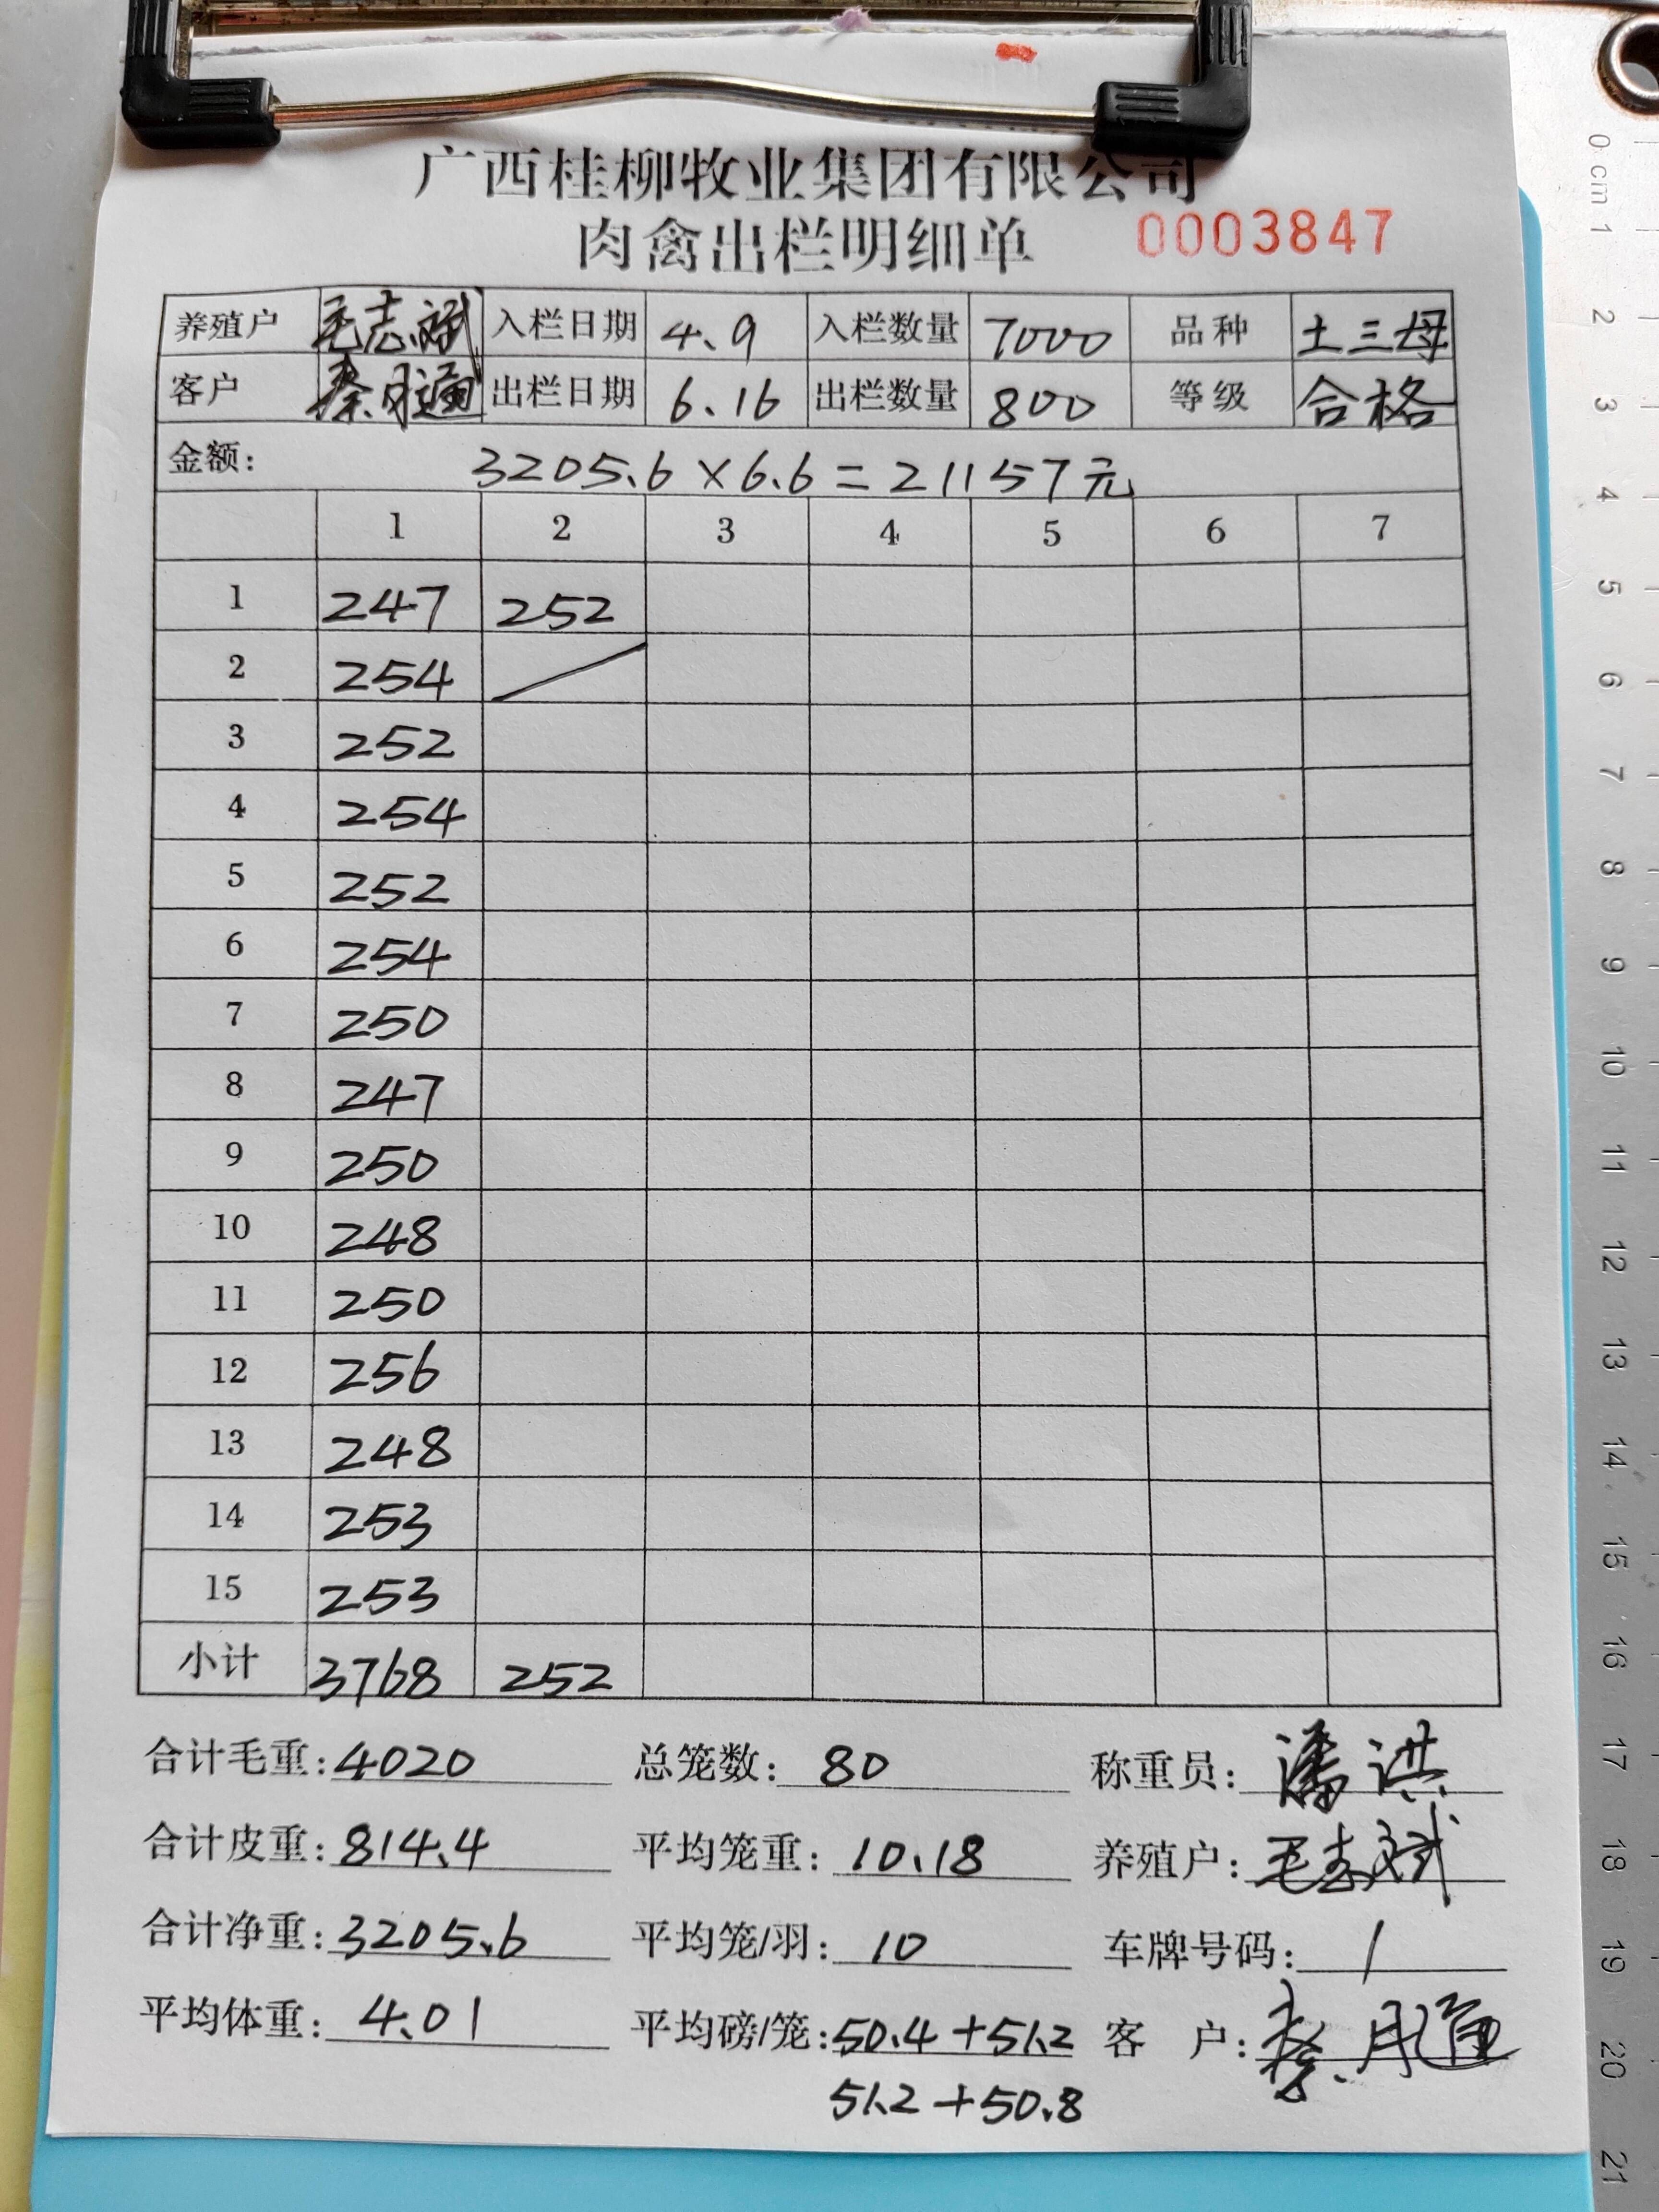 广西桂柳牧业集团有限公司
肉禽出栏明细单 0003847
养殖户 毛志斌 入栏日期 4.9 入栏数量 7000 品种 土三母
客户 秦月通 出栏日期 6.16 出栏数量 800 等级 合格
金额: 3205.6×6.6=21157元
1 2 3 4 5 6 7
1 247 252
2 254
3 252
4 254
5 252
6 254
7 250
8 247
9 250
10 248
11 250
12 256
13 248
14 253
15 253
小计 3768 252
合计毛重:4020 总笼数: 80 称重员: 潘洪
合计皮重:814.4 平均笼重: 10.18 养殖户: 毛志斌
合计净重:3205.6 平均笼/羽: 10 车牌号码: /
平均体重: 4.01 平均磅/笼:50.4+51.2 客 户: 秦月通
51.2+50.8
0 cm 1
2
3
4
5
6
7
8
9
10
11
12
13
14
15
16
17
18
19
20
21